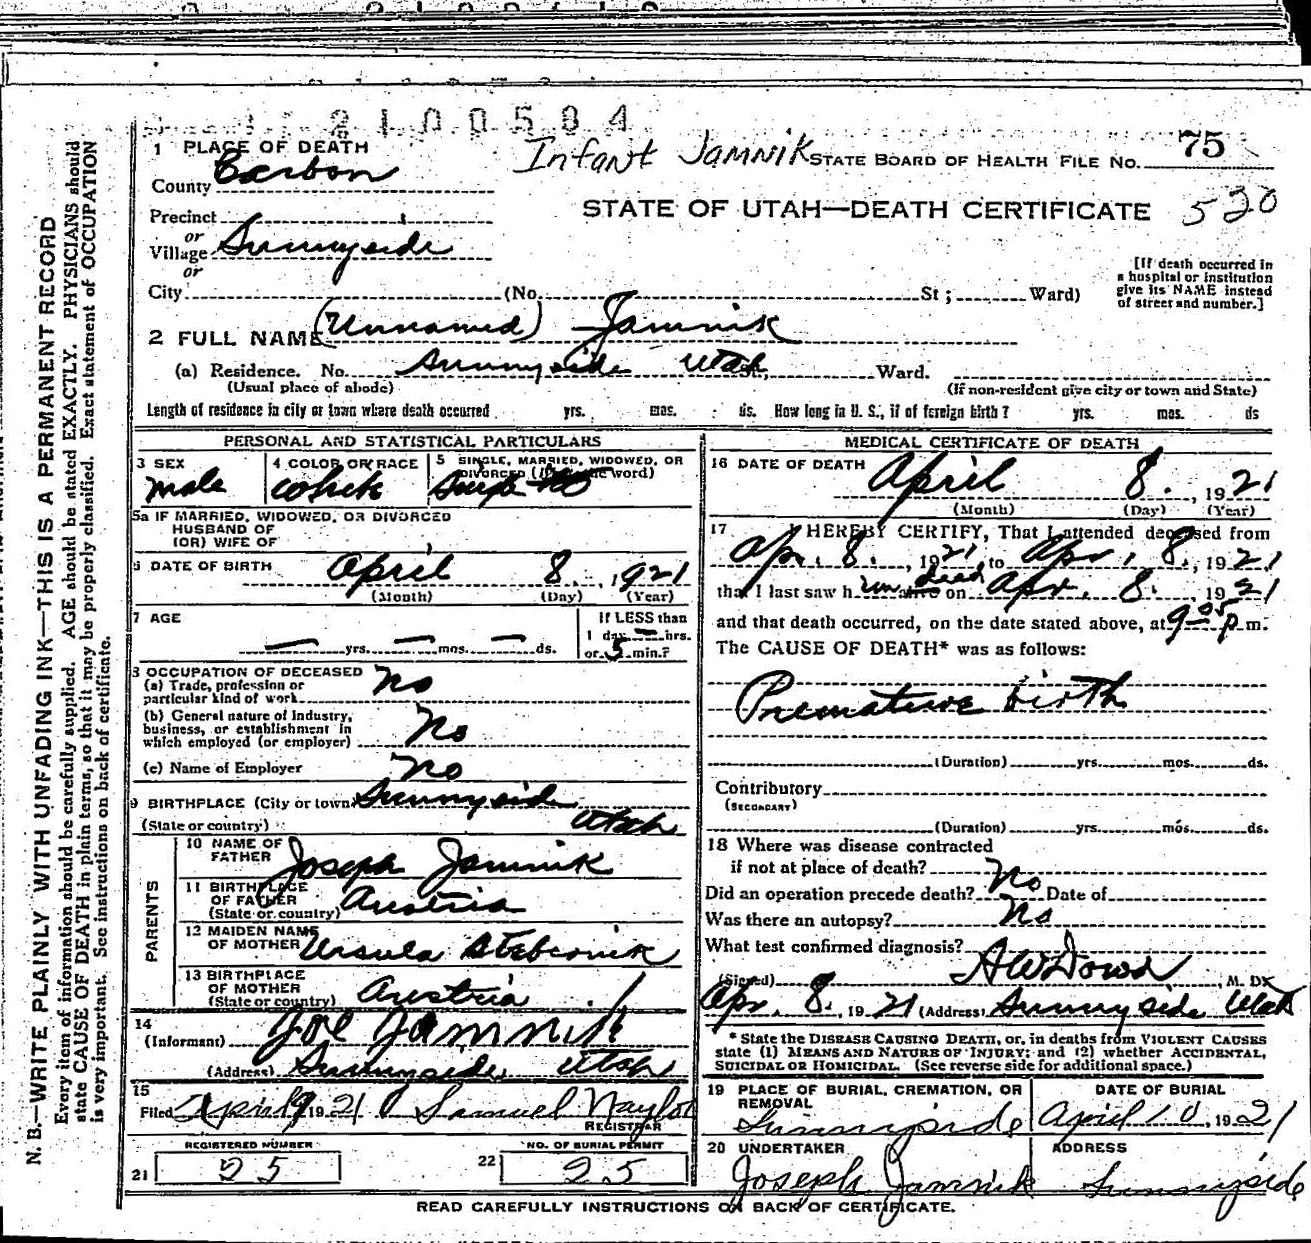 2100584
1 PLACE OF DEATH
Infant Jamnik STATE BOARD OF HEALTH FILE NO. 75
County Carbon
STATE OF UTAH—DEATH CERTIFICATE 520
Precinct
or
Village Sunnyside
or
City (No. St ; Ward)
[If death occurred in
a hospital or institution
give its NAME instead
of street and number.]
2 FULL NAME (Unnamed) Jamnik
(a) Residence. No. Sunnyside Utah Ward.
(Usual place of abode) (If non-resident give city or town and State)
Length of residence in city or town where death occurred yrs. mos. ds. How long in U. S., if of foreign birth? yrs. mos. ds
PERSONAL AND STATISTICAL PARTICULARS
3 SEX 4 COLOR OR RACE 5 SINGLE, MARRIED, WIDOWED, OR
DIVORCED word)
Male White
5a IF MARRIED, WIDOWED, OR DIVORCED
HUSBAND OF
(OR) WIFE OF
6 DATE OF BIRTH April 8. , 1921
(Month) (Day) (Year)
7 AGE If LESS than
— yrs. — mos. — ds. 1 day — hrs.
or 5 min.?
8 OCCUPATION OF DECEASED
(a) Trade, profession or
particular kind of work No
(b) General nature of industry,
business, or establishment in
which employed (or employer) No
(c) Name of Employer No
9 BIRTHPLACE (City or town) Sunnyside
(State or country) Utah
PARENTS
10 NAME OF
FATHER Joseph Jamnik
11 BIRTHPLACE
OF FATHER
(State or country) Austria
12 MAIDEN NAME
OF MOTHER Ursula
13 BIRTHPLACE
OF MOTHER
(State or country) Austria
14
(Informant) Joe Jamnik
(Address) Sunnyside Utah
15
Filed April 9 1921 Samuel Naylor
REGISTRAR
REGISTERED NUMBER NO. OF BURIAL PERMIT
21 25 22 25
MEDICAL CERTIFICATE OF DEATH
16 DATE OF DEATH April 8. , 1921
(Month) (Day) (Year)
17 I HEREBY CERTIFY, That I attended deceased from
Apr. 8. , 1921, to Apr. 8. , 1921
that I last saw h im alive dead on Apr. 8. 1921
and that death occurred, on the date stated above, at 9-05 p m.
The CAUSE OF DEATH* was as follows:
Premature birth
(Duration) yrs. mos. ds.
Contributory
(SECONDARY)
(Duration) yrs. mos. ds.
18 Where was disease contracted
if not at place of death?
Did an operation precede death? No Date of
Was there an autopsy? No
What test confirmed diagnosis?
(Signed) A W Dowd, M. D.
Apr. 8. 1921 (Address) Sunnyside Utah
* State the DISEASE CAUSING DEATH, or, in deaths from VIOLENT CAUSES
state (1) MEANS AND NATURE OF INJURY; and (2) whether ACCIDENTAL,
SUICIDAL OR HOMICIDAL. (See reverse side for additional space.)
19 PLACE OF BURIAL, CREMATION, OR
REMOVAL DATE OF BURIAL
Sunnyside April 10, 1921
20 UNDERTAKER ADDRESS
Joseph Jamnik Sunnyside
READ CAREFULLY INSTRUCTIONS ON BACK OF CERTIFICATE.
N. B.—WRITE PLAINLY WITH UNFADING INK—THIS IS A PERMANENT RECORD
Every item of information should be carefully supplied. AGE should be stated EXACTLY. PHYSICIANS should
state CAUSE OF DEATH in plain terms, so that it may be properly classified. Exact statement of OCCUPATION
is very important. See instructions on back of certificate.